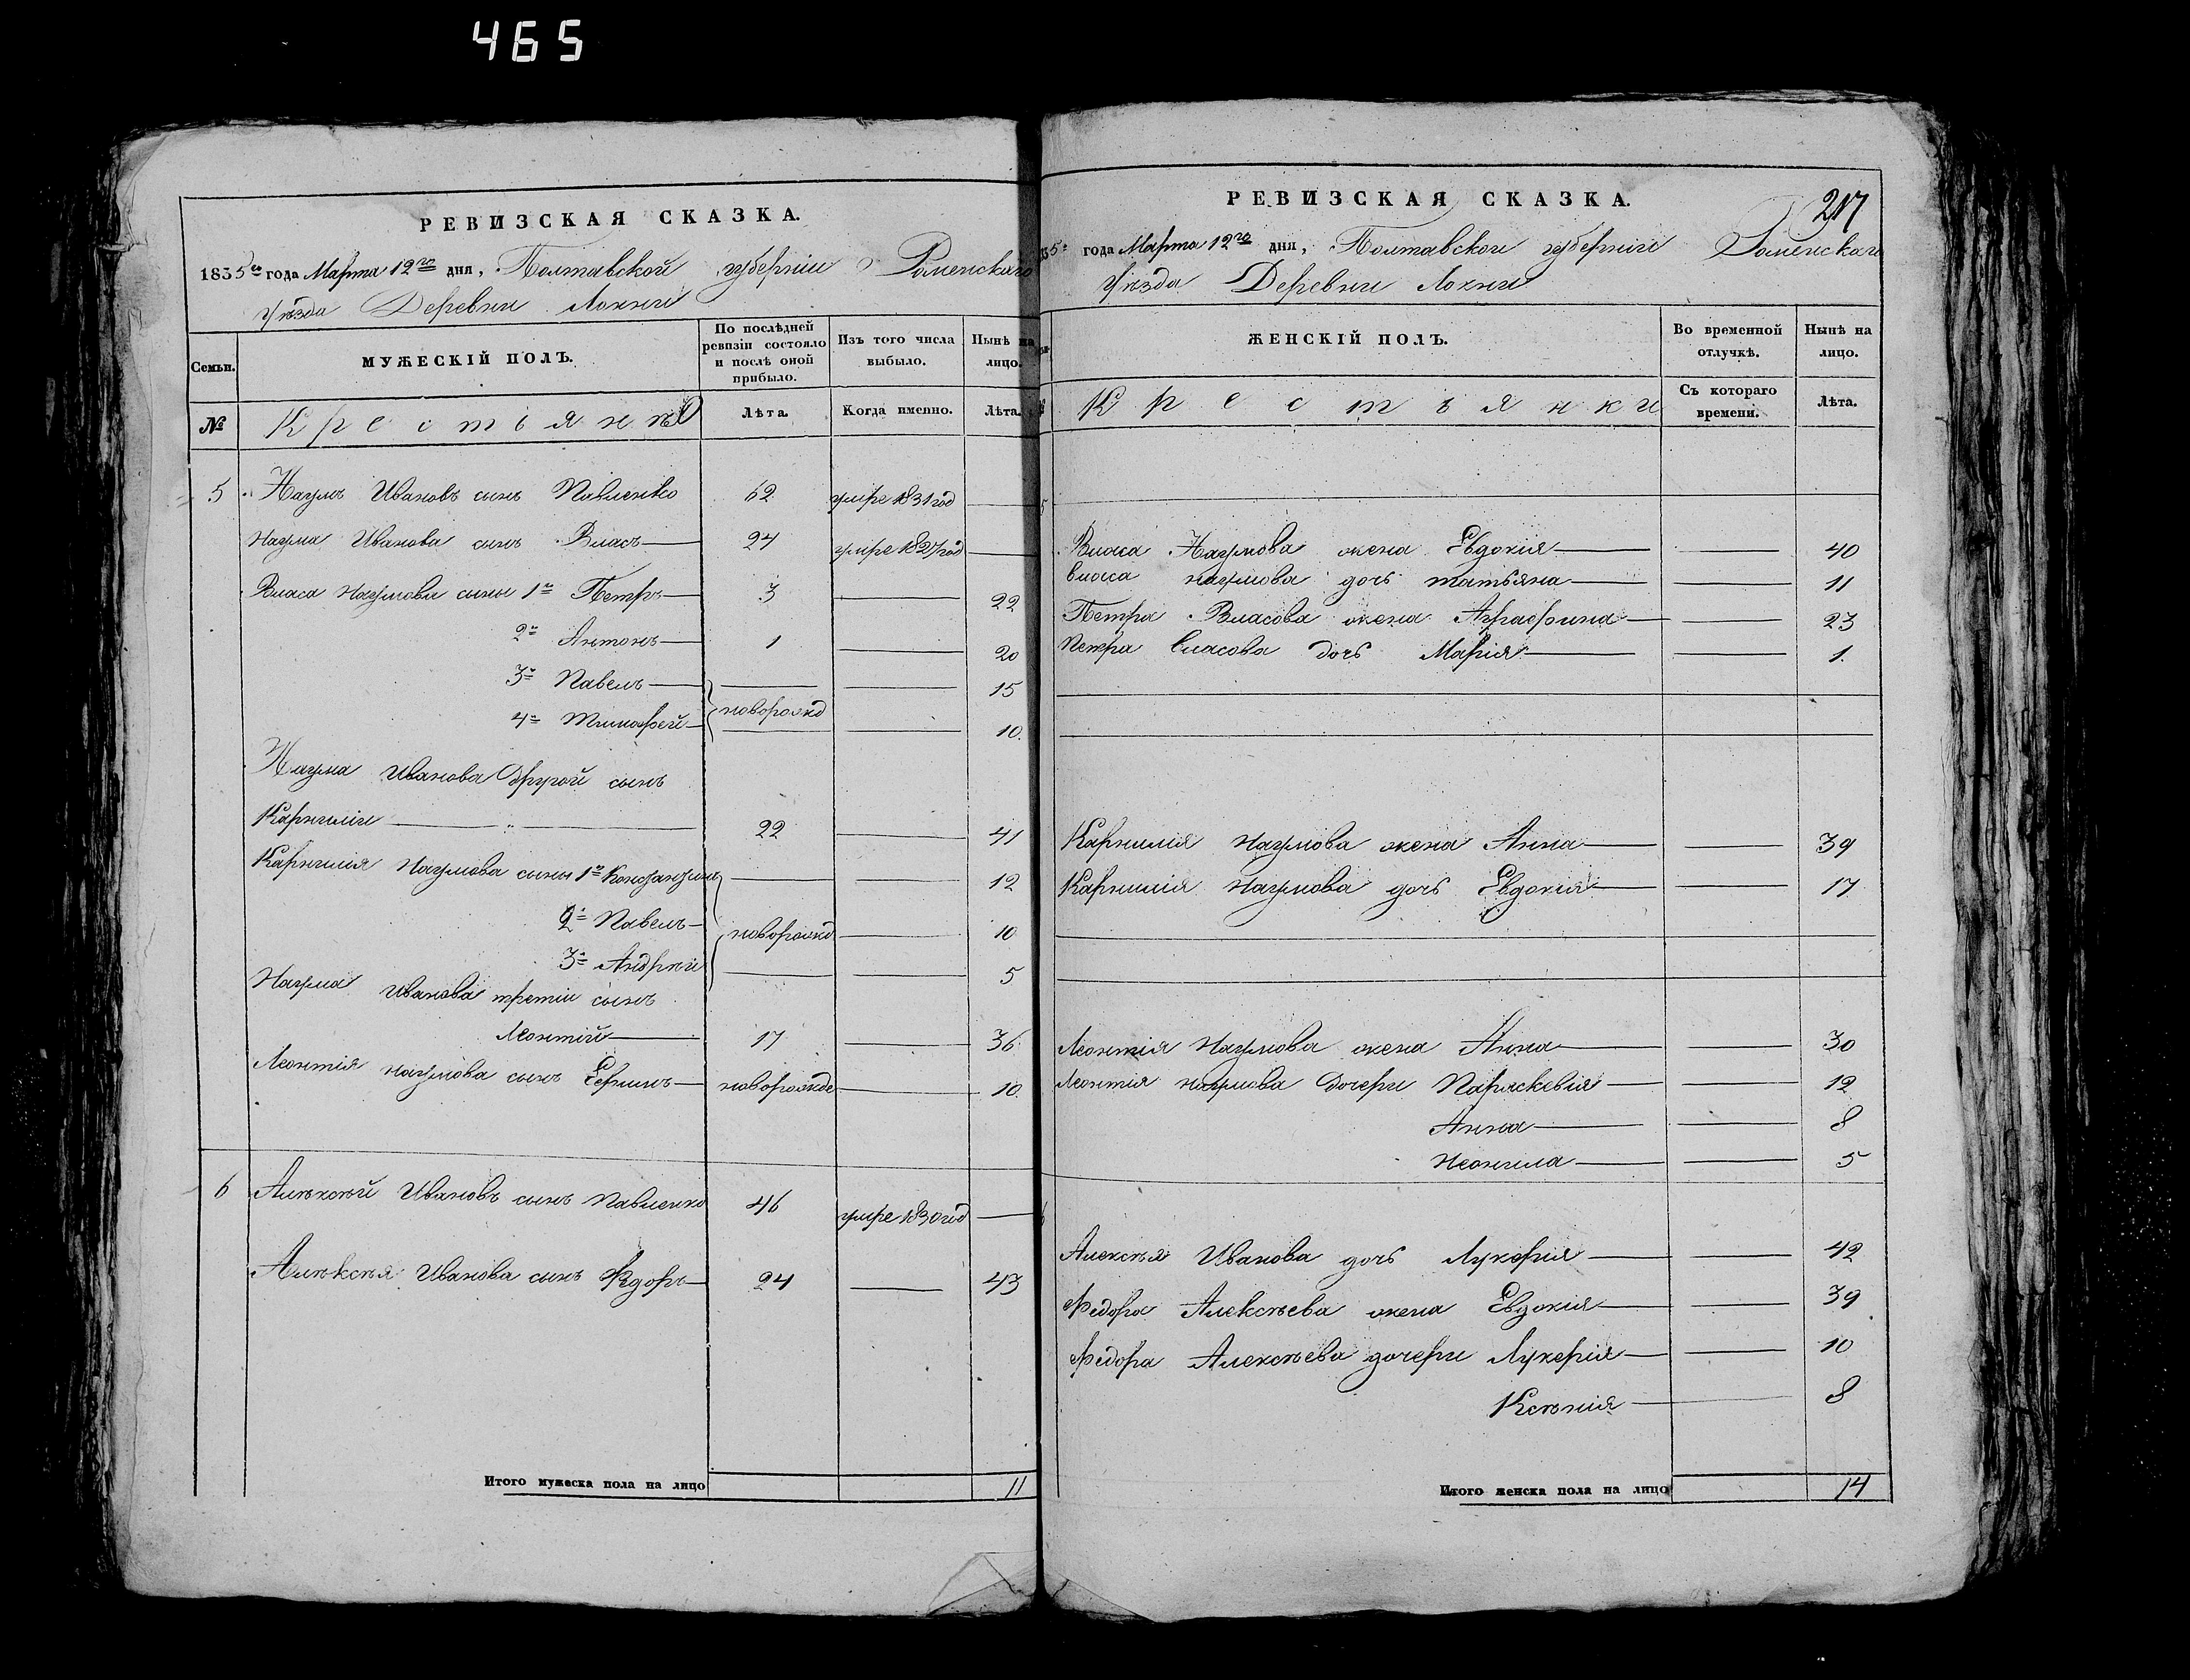 465
РЕВИЗСКАЯ СКАЗКА.
1835го года Марта 12го дня, Полтавской губерніи Роменскаго
уѣзда Деревни Локни
Семьи.
МУЖЕСКІЙ ПОЛЪ.
По послѣдней ревизіи состояло и послѣ оной прибыло.
Изъ того числа выбыло.
Нынѣ на лицо.
№
Крестьянѣ
Лѣта.
Когда именно.
Лѣта.
5 Наумъ Ивановъ сынъ Павленко 62 умре 1831 год
Наума Иванова сынъ Власъ 24 умре 1827 год
Власа Наумова сыны 1й Петръ 3 22
2й Антонъ 1 20
3й Павелъ 15
4й Тимофей новорожд 10.
Наума Иванова другой сынъ
Карнилій 22 41
Карнилія Наумова сыны 1й Константинъ 12
2й Павелъ новорожд 10
3й Андрѣй 5
Наума Иванова третій сынъ
Леонтій 17 36
Леонтія Наумова сынъ Ефимъ новорожде 10.
6 Алѣксѣй Ивановъ сынъ Павленко 46 умре 1830 год
Алѣксѣя Иванова сынъ Фѣдоръ 24 43
Итого мужеска пола на лицо 11
РЕВИЗСКАЯ СКАЗКА.
217
35го года Марта 12го дня, Полтавской губерніи Роменскаго
уѣзда Деревни Локни
ЖЕНСКІЙ ПОЛЪ.
Во временной отлучкѣ.
Нынѣ на лицо.
Крестьянки
Съ котораго времени.
Лѣта.
5
Власа Наумова жена Евдокія 40
Власа Наумова дочь Татьяна 11
Петра Власова жена Аграфина 23
Петра Власова дочь Марія 1.
Карнилія Наумова жена Анна 39
Карнилія Наумова дочь Евдокія 17
Леонтія Наумова жена Анна 30
Леонтія Наумова дочери Параскевія 12
Анна 8
Неонила 5
6
Алексѣя Иванова дочь Лукерія 42
Федора Алексѣева жена Евдокія 39
Федора Алексѣева дочери Лукерія 10
Ксѣнія 8
Итого женска пола на лицо 14